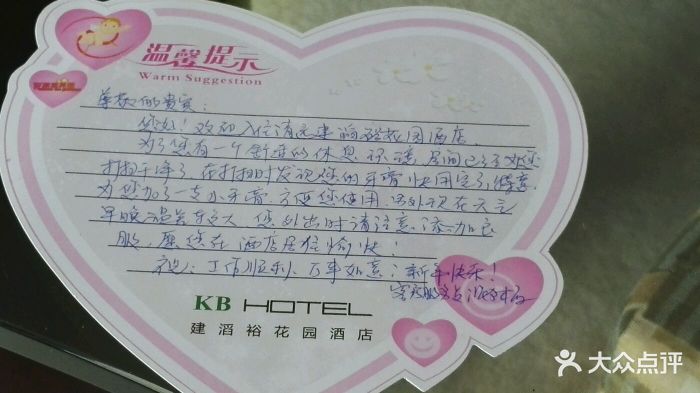 温馨提示
Warm Suggestion
尊敬的贵宾：
您好！欢迎入住清远建滔裕花园酒店。
为了您有一个舒适的休息环境，房间已经为您
打扫干净了，在打扫时发现您的牙膏快用完了，特意
为您加了一支小牙膏，方便您使用，另外现在天气
早晚温差较大，您外出时请注意添加衣
服，愿您在酒店居住愉快！
祝：工作顺利，万事如意，新年快乐！
客房服务员
KB HOTEL
建滔裕花园酒店
大众点评